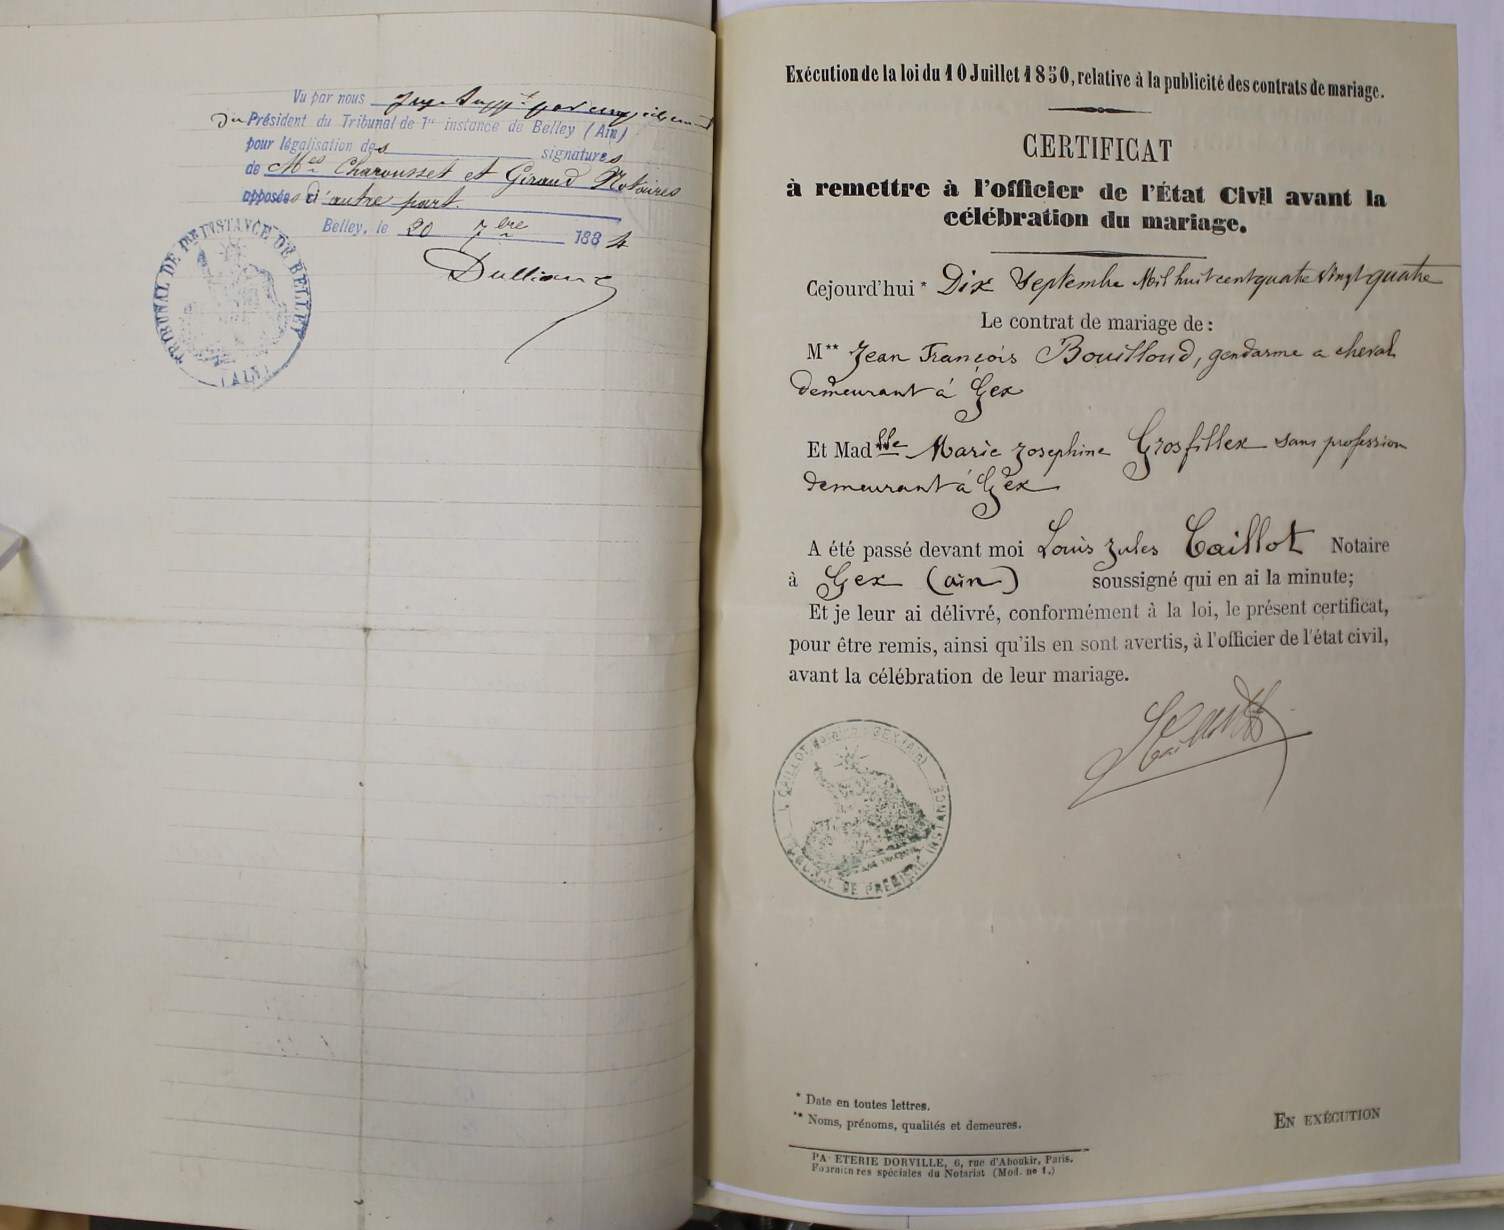 Vu par nous Juge Suppt par empêchement
du Président du Tribunal de 1re instance de Belley (Ain)
pour légalisation des signatures
de Mes Charousset et Giraud Notaires
apposées d'autre part.
Belley, le 20 7bre 1884
TRIBUNAL DE 1RE INSTANCE DE BELLEY
(AIN)
Exécution de la loi du 10 Juillet 1850, relative à la publicité des contrats de mariage.
CERTIFICAT
à remettre à l'officier de l'État Civil avant la
célébration du mariage.
Cejourd'hui * Dix Septembre Mil huit cent quatre vingt quatre
Le contrat de mariage de :
M** Jean François Bouilloud, gendarme a cheval
demeurant à Gex
Et Madlle Marie Josephine Grosfillex sans profession
demeurant à Gex
A été passé devant moi Louis Jules Caillot Notaire
à Gex (ain) soussigné qui en ai la minute;
Et je leur ai délivré, conformément à la loi, le présent certificat,
pour être remis, ainsi qu'ils en sont avertis, à l'officier de l'état civil,
avant la célébration de leur mariage.
CAILLOT GEX (AIN)
TRIBUNAL DE PREMIERE INSTANCE
* Date en toutes lettres.
** Noms, prénoms, qualités et demeures.
EN EXÉCUTION
PA ETERIE DORVILLE, 6, rue d'Aboukir, Paris.
Fournitures spéciales du Notariat (Mod. no 1.)